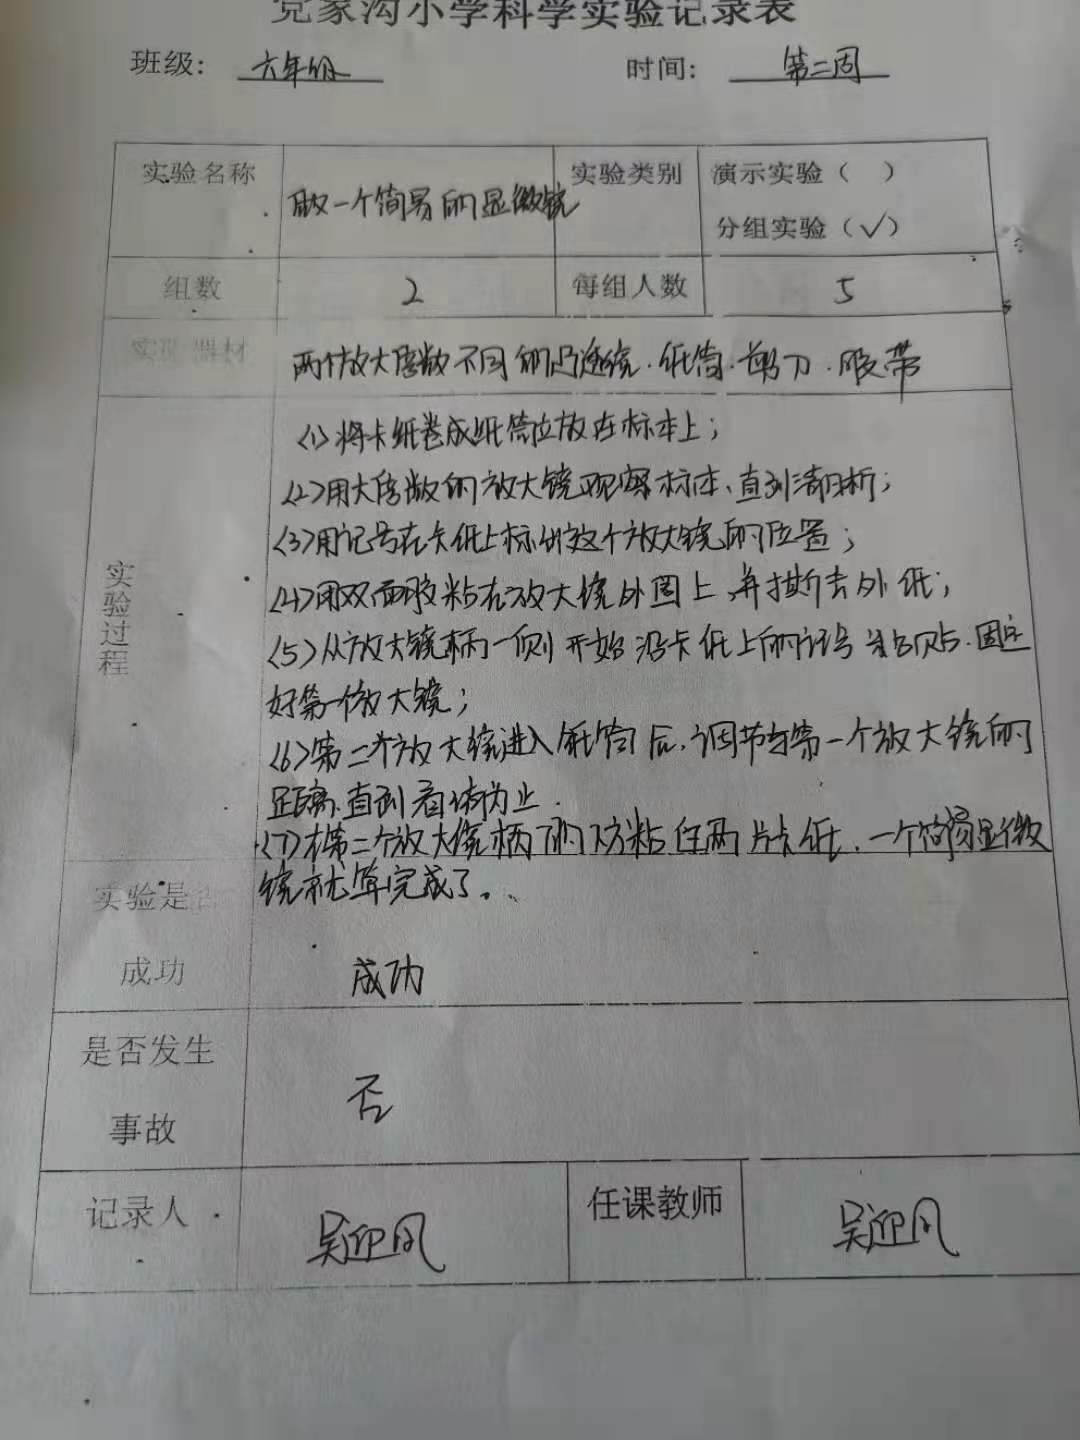 党家沟小学科学实验记录表
班级: 六年级 时间: 第二周
实验名称 做一个简易的显微镜 实验类别 演示实验( )
分组实验(√)
组数 2 每组人数 5
实验器材 两个放大倍数不同的凸透镜.纸筒.剪刀.胶带
实验过程
(1)将卡纸卷成纸筒位放在标本上;
(2)用大倍数的放大镜观察标本、直到清晰;
(3)用记号在卡纸上标出这个放大镜的位置;
(4)用双面胶粘在放大镜外围上,并撕去外纸;
(5)从放大镜柄一侧开始沿卡纸上的记号粘贴.固定
好第一个放大镜;
(6)第二个放大镜进入纸筒后,调节与第一个放大镜的
距离.直到看清为止.
(7)在第二个放大镜柄下的下方粘住两片卡纸.一个简易显微
镜就算完成了。
实验是否
成功 成功
是否发生
事故 否
记录人 吴迎凤 任课教师 吴迎凤